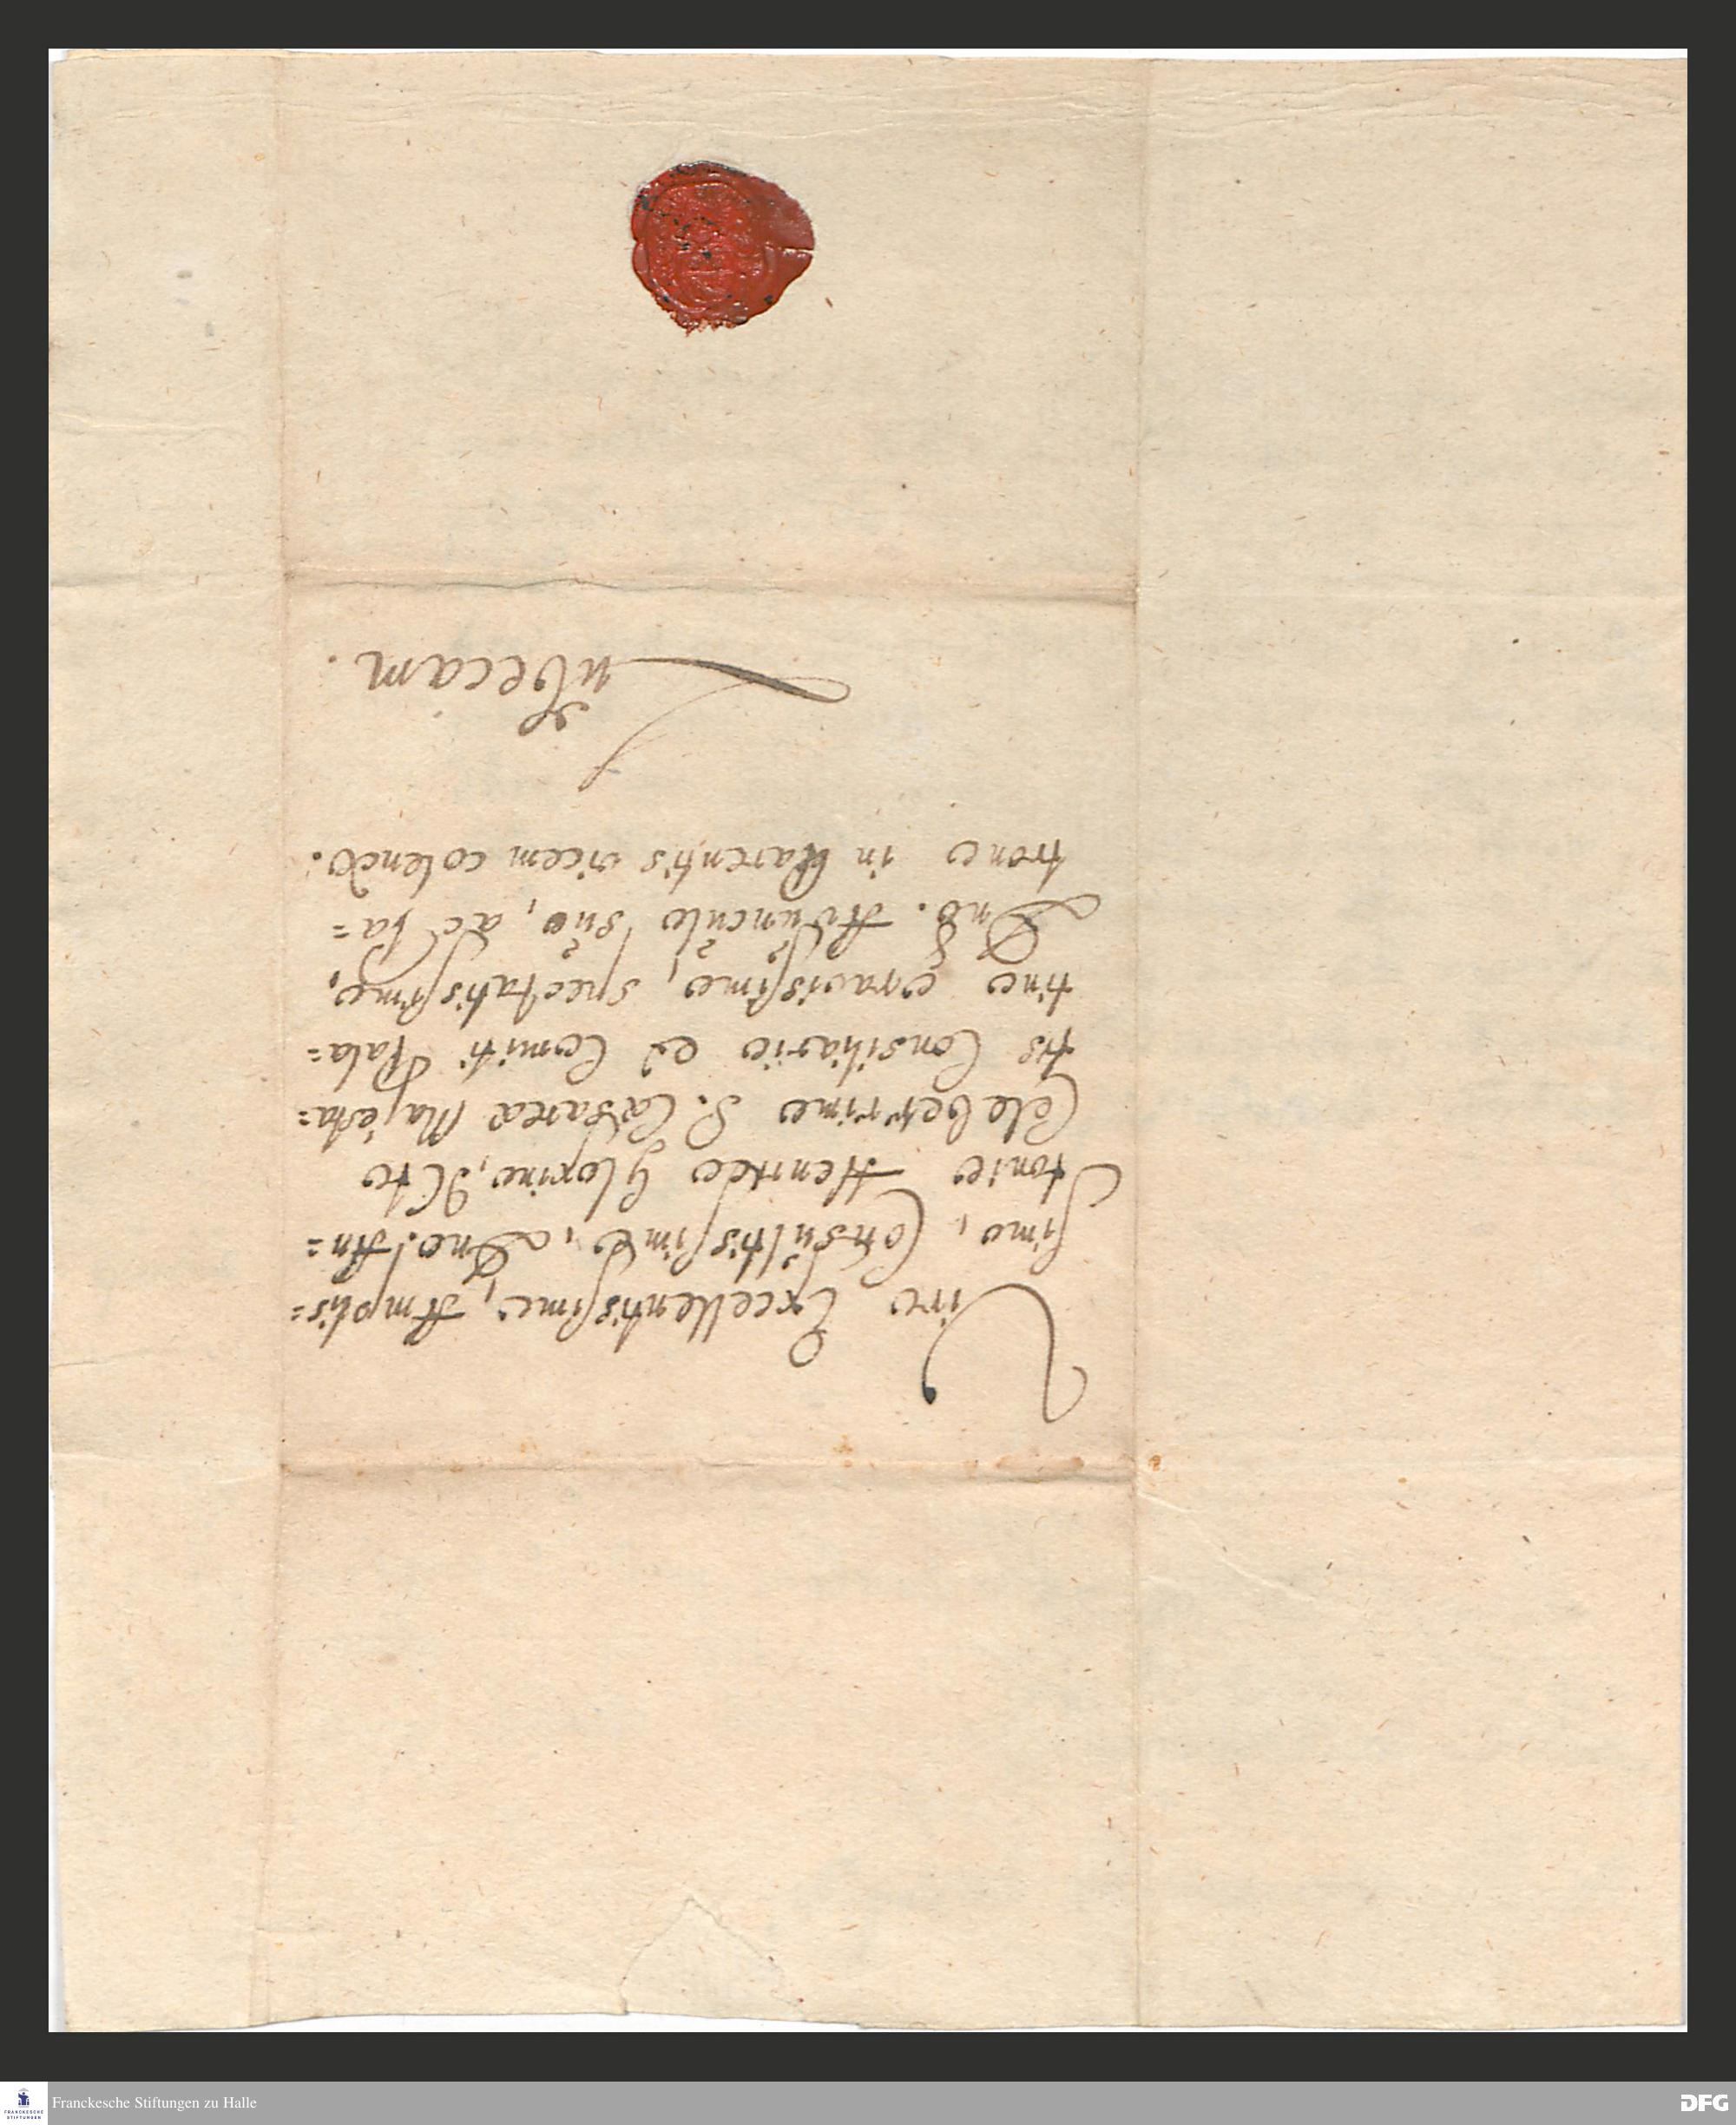 Viro Excellentissimo, Amplis=
simo, Consultissimo, Dno. An=
tonio Henrico Gloxino, JCto
Celeberrimo S. Cæsareæ Majesta=
tis Consiliario et Comiti Pala=
tino gravissimo, spectatissimo,
Dno. Avunculo suo, ac Pa=
trono in Parentis vicem colendo.
Lubecam.
Franckesche Stiftungen zu Halle
FRANCKESCHE
STIFTUNGEN
DFG